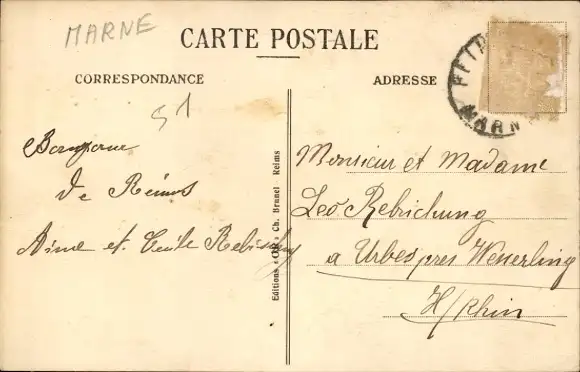 MARNE
CARTE POSTALE
CORRESPONDANCE
ADRESSE
51
MARN
de Reims
Aimé et Cécile
Editions Ch. Brunel Reims
Monsieur et Madame
Léo Rebischung
a Urbes pres Wesserling
H/Rhin